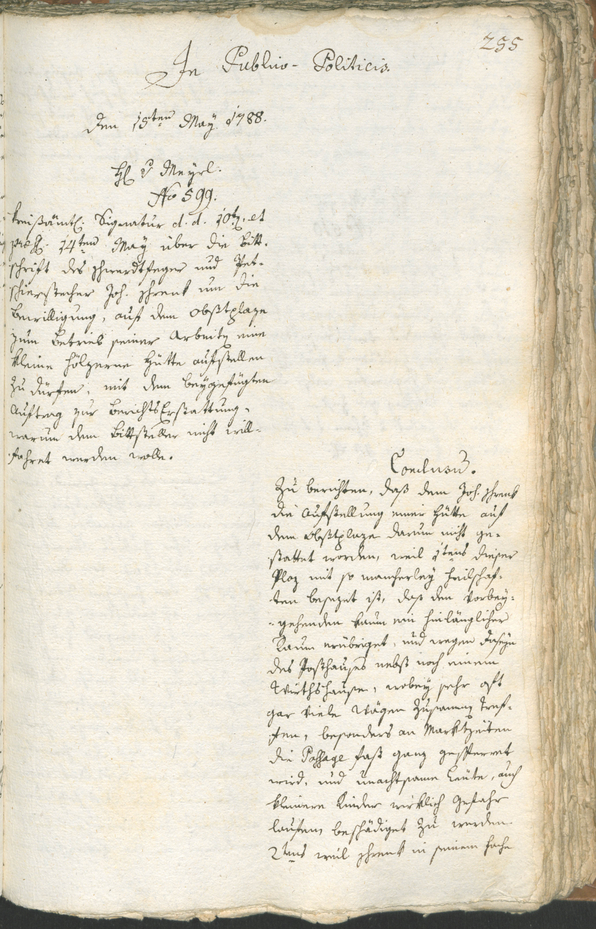 255
In Publico-Politicis.
Den 15ten May 1788.
H. v Meyrl.
No 599.
Kreißämtl. Signatur d.d. 10t, et
14ten May über die Bitt-
schrift des Schwerdtfeger und Pet-
schierstecher Joh. Schrenk um die
Bewilligung, auf dem Obstplaze
zum Betrieb seiner Arbeit eine
kleine hölzerne Hütte aufstellen
zu dürfen, mit dem beygefügten
Auftrag zur Berichts Erstattung,
warum dem Bittsteller nicht will-
fahret werden wolle.
Conclusum.
Zu berichten, daß dem Joh. Schrenk
die Aufstellung einer Hütte auf
dem Obstplaze darum nicht ge-
stattet worden, weil 1tens dieser
Plaz mit so mancherley Feilschaf-
ten besezet ist, daß den Vorbey-
gehenden kaum ein hinlänglicher
Raum erübriget, und wegen
des Posthauses nebst noch einem
Wirthshause, wobey sehr oft
gar viele Wägen zusamm tref-
fen, besonders an Marktzeiten
die Passage fast ganz gesperret
wird, und unachtsame Leute, auch
kleinere Kinder wirklich Gefahr
laufen beschädiget zu werden.
2tens weil Schrenk in seinem Fache